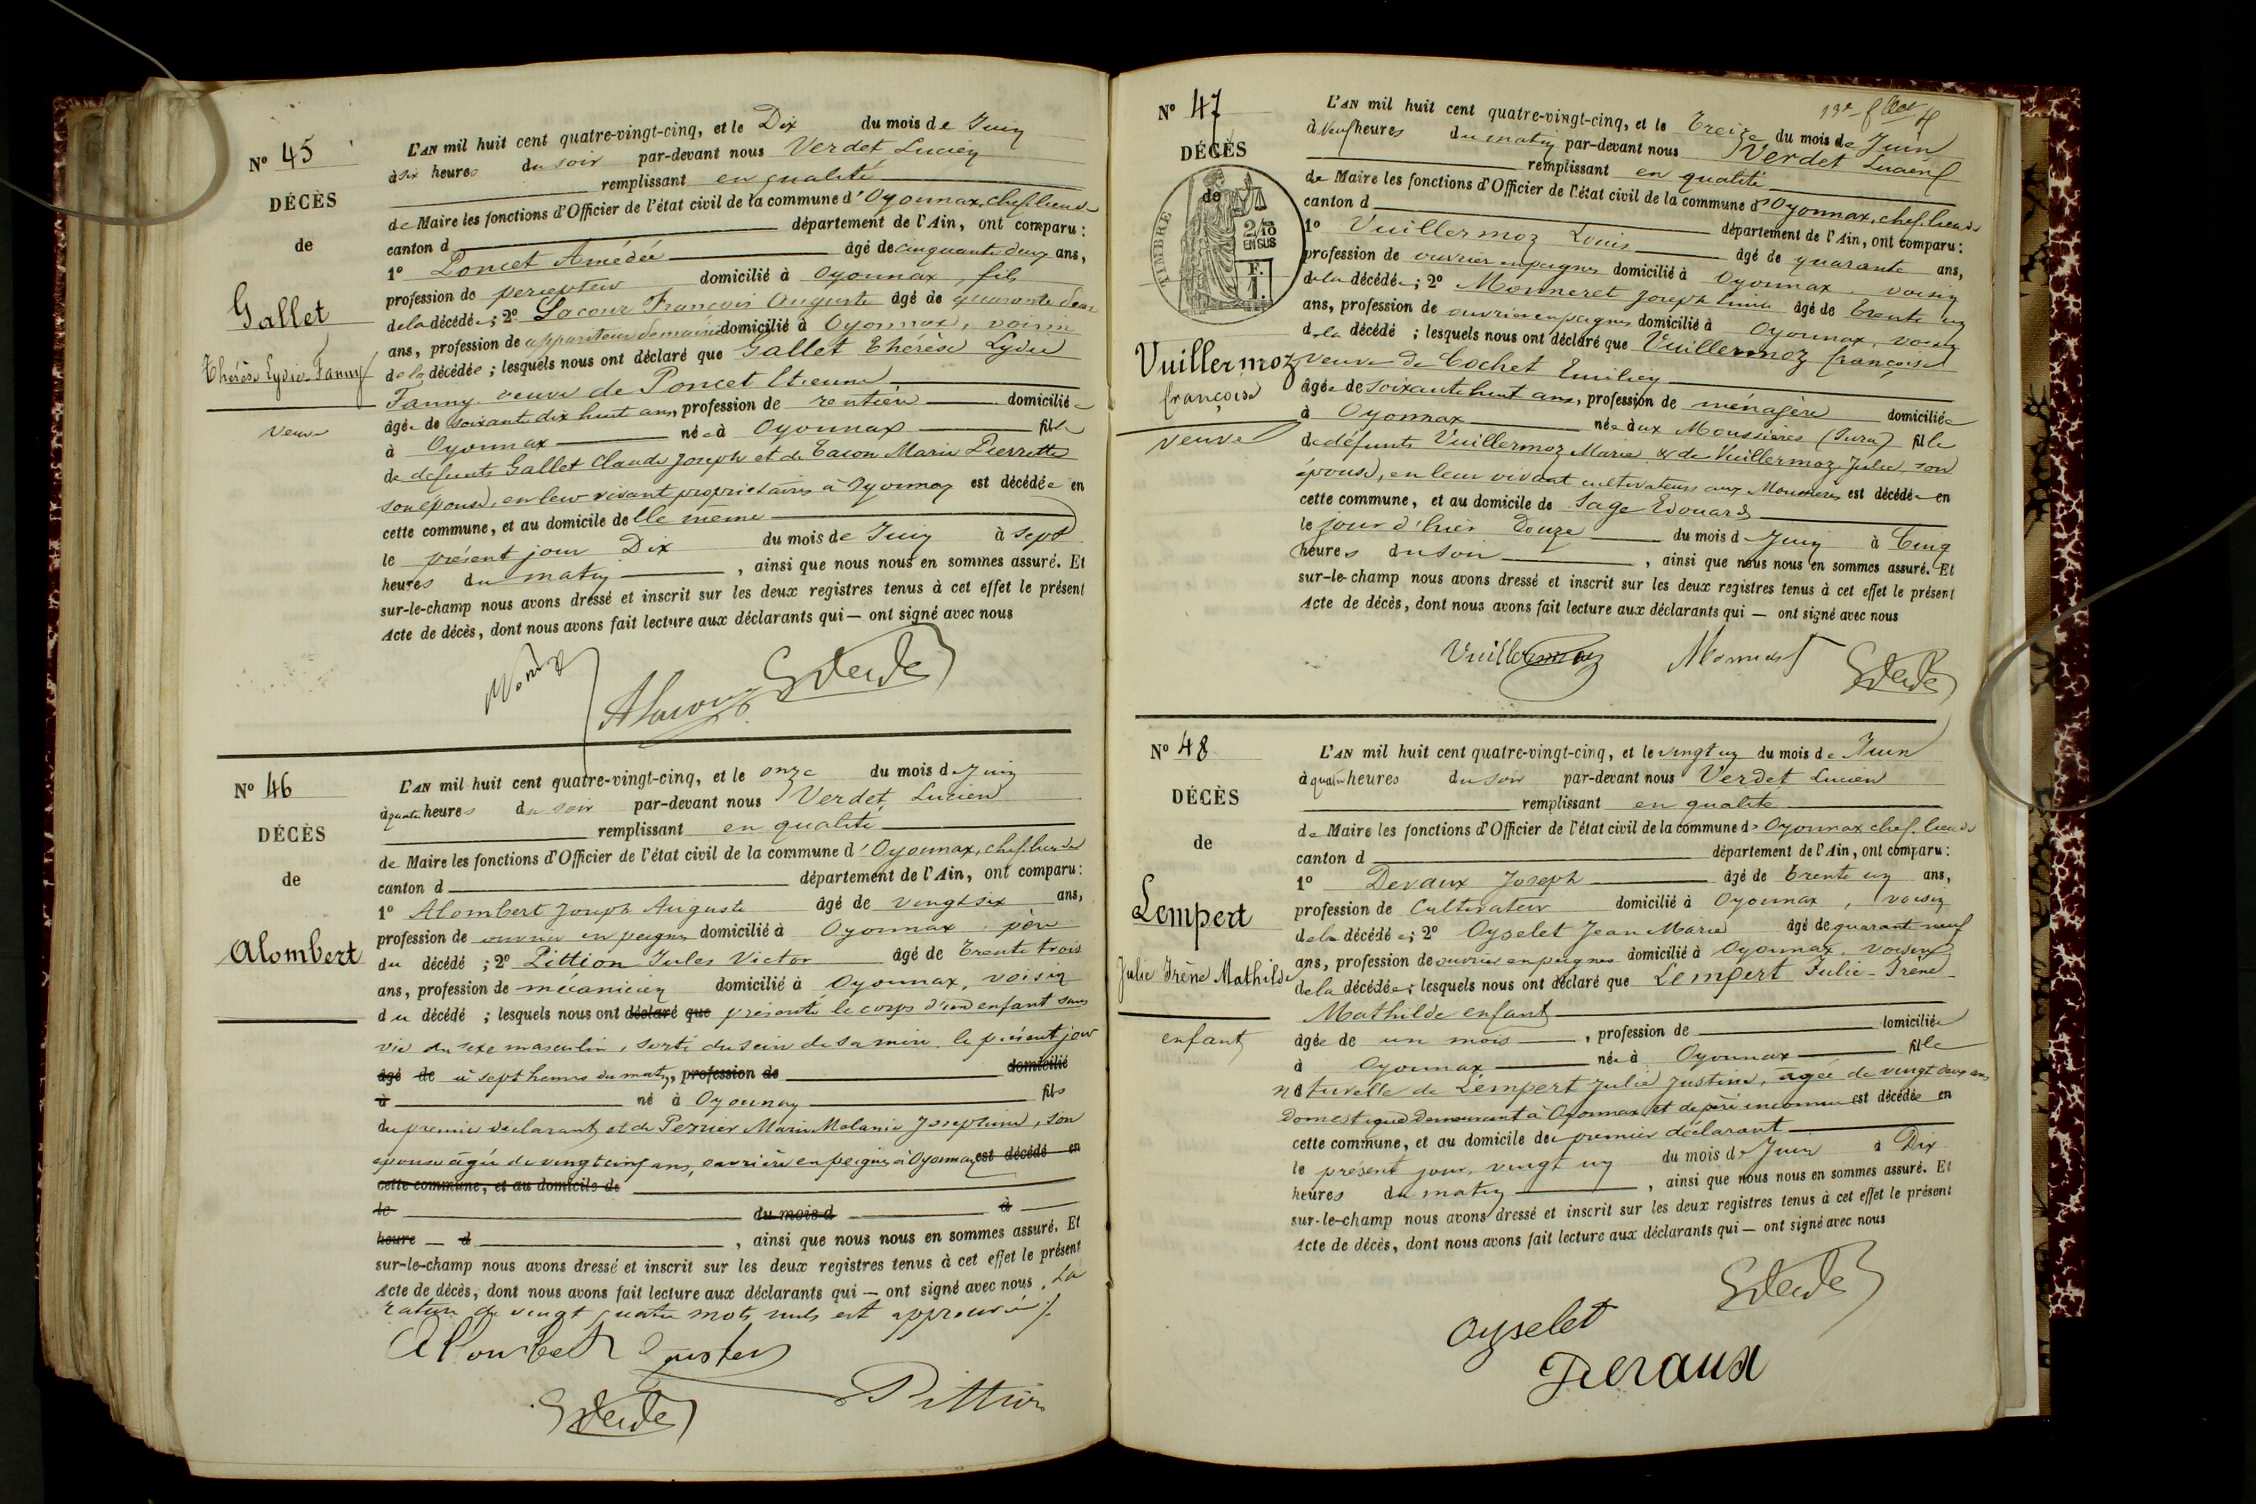 N° 45
DÉCÈS
de
Gallet
Thérèse Lydie Fanny
veuve
L'AN mil huit cent quatre-vingt-cinq, et le Dix du mois de Juin
à six heures du soir par-devant nous Verdet Lucien
remplissant en qualité
de Maire les fonctions d'Officier de l'état civil de la commune d'Oyonnax, chef lieu de
canton d département de l'Ain, ont comparu :
1° Poncet Amédée âgé de cinquante deux ans,
profession de percepteur domicilié à Oyonnax, fils
de la décédée ; 2° Lacour François Auguste âgé de quarante deux
ans, profession de appariteur de mairie domicilié à Oyonnax, voisin
de la décédée ; lesquels nous ont déclaré que Gallet Thérèse Lydie
Fanny veuve de Poncet Etienne
âgée de soixante dix huit ans, profession de rentière domiciliée
à Oyonnax née à Oyonnax fille
de défunts Gallet Claude Joseph et de Tacon Marie Pierrette
son épouse, en leur vivant propriétaires à Oyonnax est décédée en
cette commune, et au domicile de elle même
le présent jour Dix du mois de Juin à sept
heures du matin , ainsi que nous nous en sommes assuré. Et
sur-le-champ nous avons dressé et inscrit sur les deux registres tenus à cet effet le présent
Acte de décès, dont nous avons fait lecture aux déclarants qui — ont signé avec nous
N° 46
DÉCÈS
de
Alombert
L'AN mil huit cent quatre-vingt-cinq, et le onze du mois de Juin
à quatre heures du soir par-devant nous Verdet Lucien
remplissant en qualité
de Maire les fonctions d'Officier de l'état civil de la commune d'Oyonnax, chef lieu de
canton d département de l'Ain, ont comparu :
1° Alombert Joseph Auguste âgé de vingt six ans,
profession de ouvrier en peignes domicilié à Oyonnax, père
du décédé ; 2° Pittion Jules Victor âgé de trente trois
ans, profession de mécanicien domicilié à Oyonnax, voisin
du décédé ; lesquels nous ont déclaré que présenté le corps d'un enfant sans
vie du sexe masculin, sorti du sein de sa mère le présent jour
âgé de à sept heures du matin, profession de domicilié
à né à Oyonnax fils
du premier déclarant et de Perrier Marie Melanie Josephine, son
épouse âgée de vingt cinq ans, ouvrière en peignes à Oyonnax est décédé en
cette commune, et au domicile de
le du mois d à
heure — d , ainsi que nous nous en sommes assuré. Et
sur-le-champ nous avons dressé et inscrit sur les deux registres tenus à cet effet le présent
Acte de décès, dont nous avons fait lecture aux déclarants qui — ont signé avec nous. La
rature de vingt quatre mots nuls est approuvée
Alombert
Pittion
N° 47
DÉCÈS
de
TIMBRE
2/10
EN SUS
F.
1.
Vuillermoz
françoise
veuve
L'AN mil huit cent quatre-vingt-cinq, et le treize du mois de Juin
à neuf heures du matin par-devant nous Verdet Lucien
remplissant en qualité
de Maire les fonctions d'Officier de l'état civil de la commune d'Oyonnax, chef lieu de
canton d département de l'Ain, ont comparu :
1° Vuillermoz Louis âgé de quarante ans,
profession de ouvrier en peignes domicilié à Oyonnax, voisin
de la décédée ; 2° Monneret Joseph Emile âgé de trente un
ans, profession de ouvrier en peignes domicilié à Oyonnax, voisin
de la décédé ; lesquels nous ont déclaré que Vuillermoz françoise
veuve de Cochet Emilien
âgée de soixante huit ans, profession de ménagère domiciliée
à Oyonnax née aux Moussières (Jura) fille
de défunts Vuillermoz Marie & de Vuillermoz Julie, son
épouse, en leur vivant cultivateurs aux Moussières est décédée en
cette commune, et au domicile de Sage Edouard
le jour d'hier Douze du mois de Juin à Cinq
heures du soir , ainsi que nous nous en sommes assuré. Et
sur-le-champ nous avons dressé et inscrit sur les deux registres tenus à cet effet le présent
Acte de décès, dont nous avons fait lecture aux déclarants qui — ont signé avec nous
Vuillermoz
N° 48
DÉCÈS
de
Lempert
Julie Irène Mathilde
enfant
L'AN mil huit cent quatre-vingt-cinq, et le vingt un du mois de Juin
à quatre heures du soir par-devant nous Verdet Lucien
remplissant en qualité
de Maire les fonctions d'Officier de l'état civil de la commune d'Oyonnax chef lieu de
canton d département de l'Ain, ont comparu :
1° Devaux Joseph âgé de trente un ans,
profession de Cultivateur domicilié à Oyonnax, voisin
de la décédée ; 2° Oyselet Jean Marie âgé de quarant neuf
ans, profession de ouvrier en peignes domicilié à Oyonnax, voisin
de la décédée ; lesquels nous ont déclaré que Lempert Julie-Irène
Mathilde enfant
âgée de un mois , profession de domiciliée
à Oyonnax née à Oyonnax fille
naturelle de Lempert Julie Justine, âgée de vingt deux ans
Domestique Demeurant à Oyonnax et de père inconnu est décédée en
cette commune, et au domicile de premier déclarant
le présent jour, vingt un du mois de Juin à Dix
heures du matin , ainsi que nous nous en sommes assuré. Et
sur-le-champ nous avons dressé et inscrit sur les deux registres tenus à cet effet le présent
Acte de décès, dont nous avons fait lecture aux déclarants qui — ont signé avec nous
Oyselet
Devaux